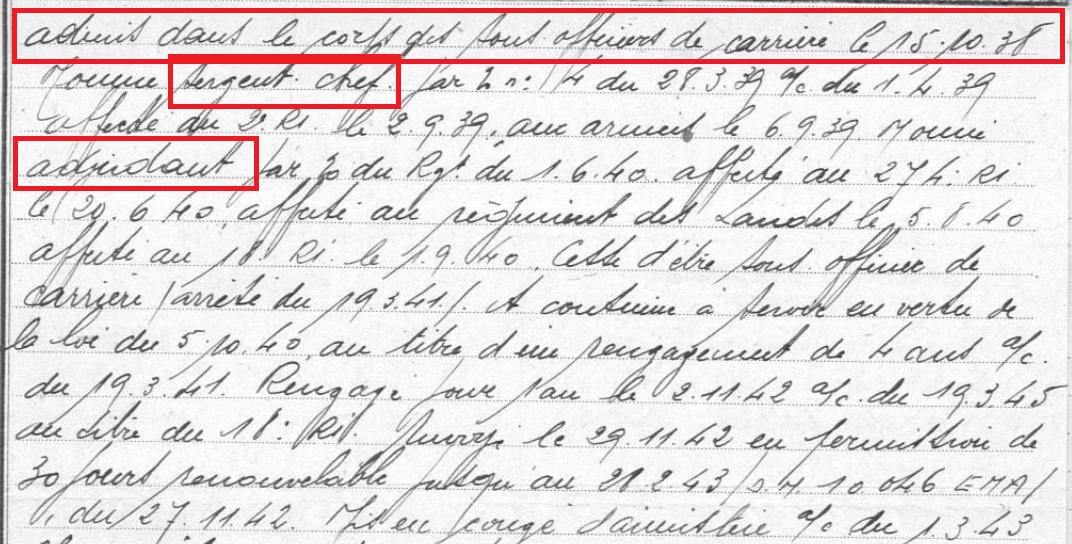 admis dans le corps des sous officiers de carrière le 15.10.38
Nommé sergent chef. par D n: 14 du 28.3.39 a/c. du 1.4.39
Affecté au 2e RI. le 2.9.39. aux armées le 6.9.39 Nommé
adjudant par D du Rgt. du 1.6.40. affecté au 274. RI.
le 20.6.40, affecté au régiment des Landes le 5.8.40
affecté au 18. RI. le 1.9.40. Cesse d'être sous officier de
carrière (arrêté du 19.3.41). A continué à servir en vertu de
la loi du 5.10.40, au titre d'un rengagement de 4 ans a/c.
du 19.3.41. Rengagé pour 1 an le 2.11.42 a/c. du 19.3.45
au titre du 18: RI. le 29.11.42 en permission de
30 jours renouvelable jusqu'au 28.2.43 (D M. 10 046 EMA/
du 27.11.42. Mis en congé d'armistice a/c du 1.3.43